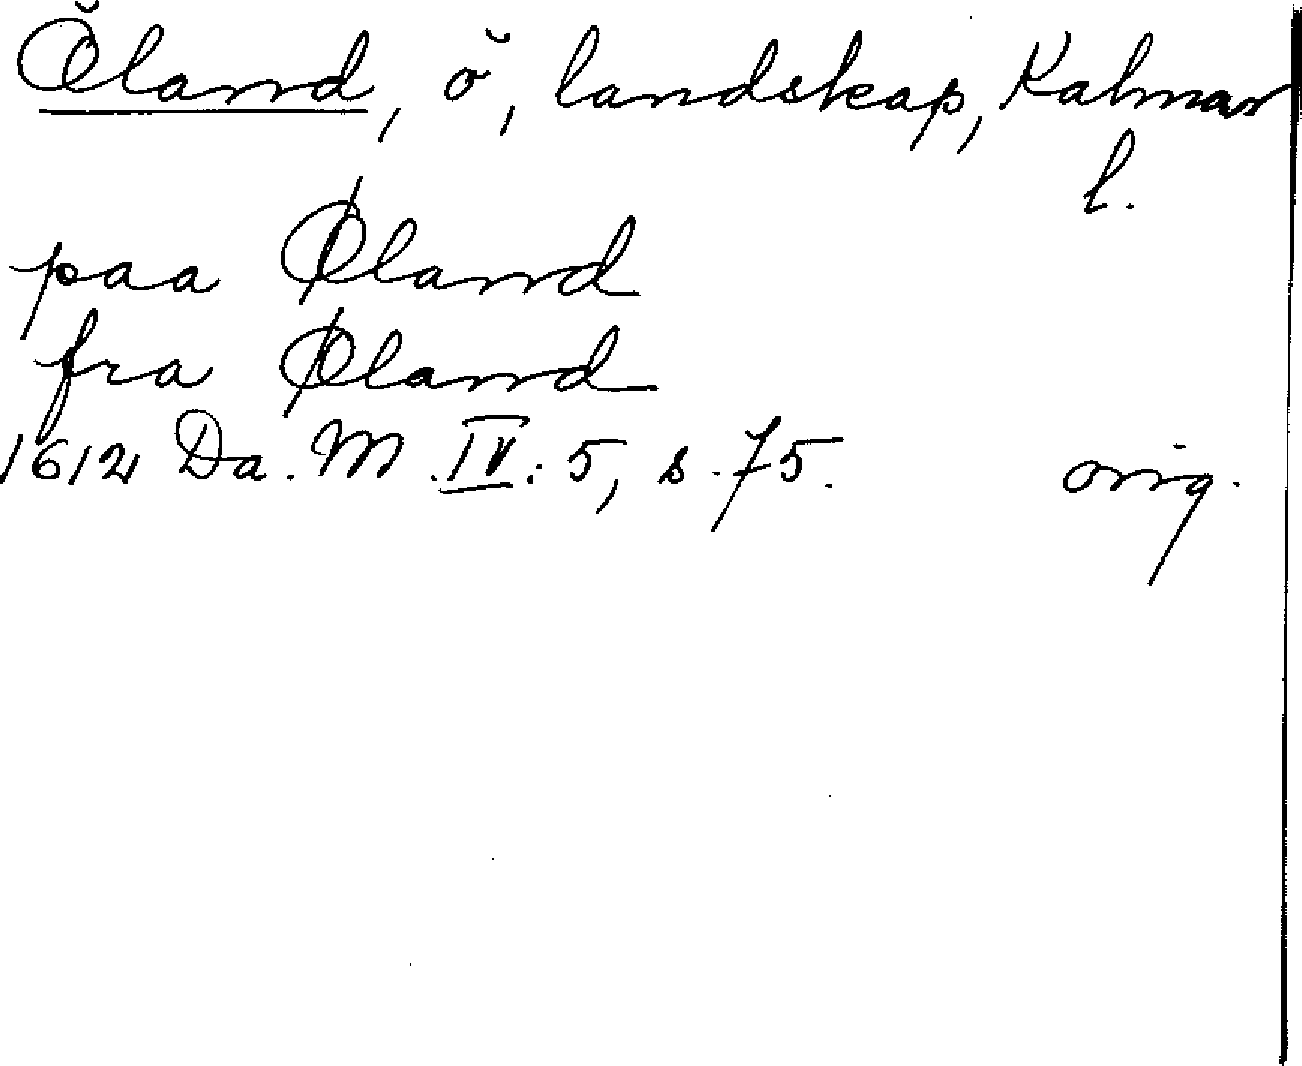 Öland, ö, landskap, Kalmar
l.
paa Øland
fra Øland
1612 Da. M. IV: 5, s. 75. orig.